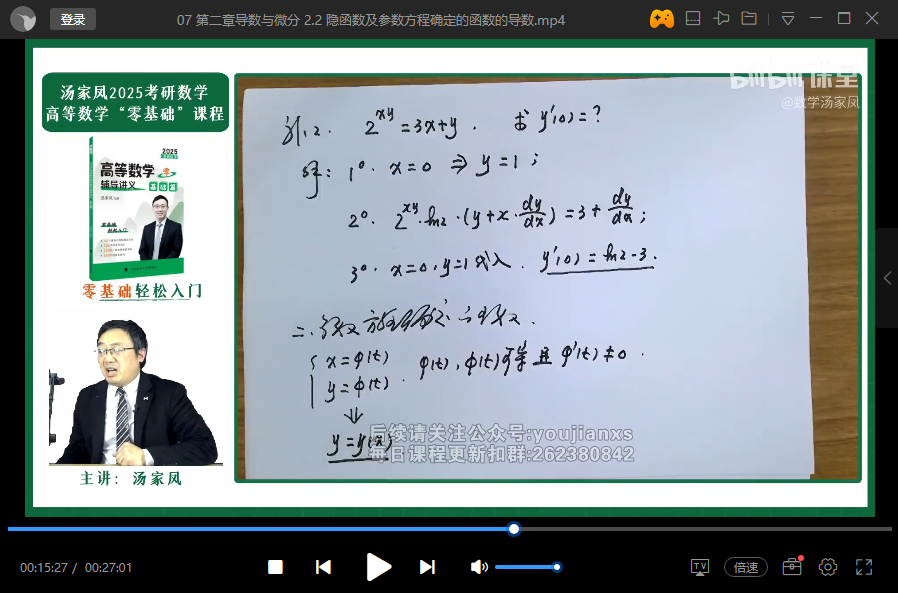 登录
07 第二章导数与微分 2.2 隐函数及参数方程确定的函数的导数.mp4
汤家凤2025考研数学
高等数学“零基础”课程
2025
高等数学
辅导讲义
基础篇
零基础轻松入门
主讲: 汤家凤
课堂
@数学汤家凤
例2. 2^{xy}=3x+y. 求 y'(0)=?
解: 1°. x=0 ⇒ y=1;
2°. 2^{xy}·ln2·(y+x·dy/dx)=3+dy/dx;
3°. x=0, y=1代入. y'(0)=ln2-3.
二.
{ x=φ(t)
y=ϕ(t). φ(t), ϕ(t)可导且 φ'(t)≠0.
⇓
y=y(x)
后续请关注公众号:youjianxs
每日课程更新扣群:262380842
00:15:27 / 00:27:01
TV
倍速